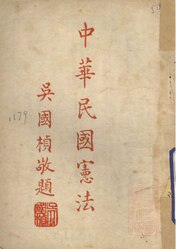 中華民國憲法
吳國楨敬題
1179